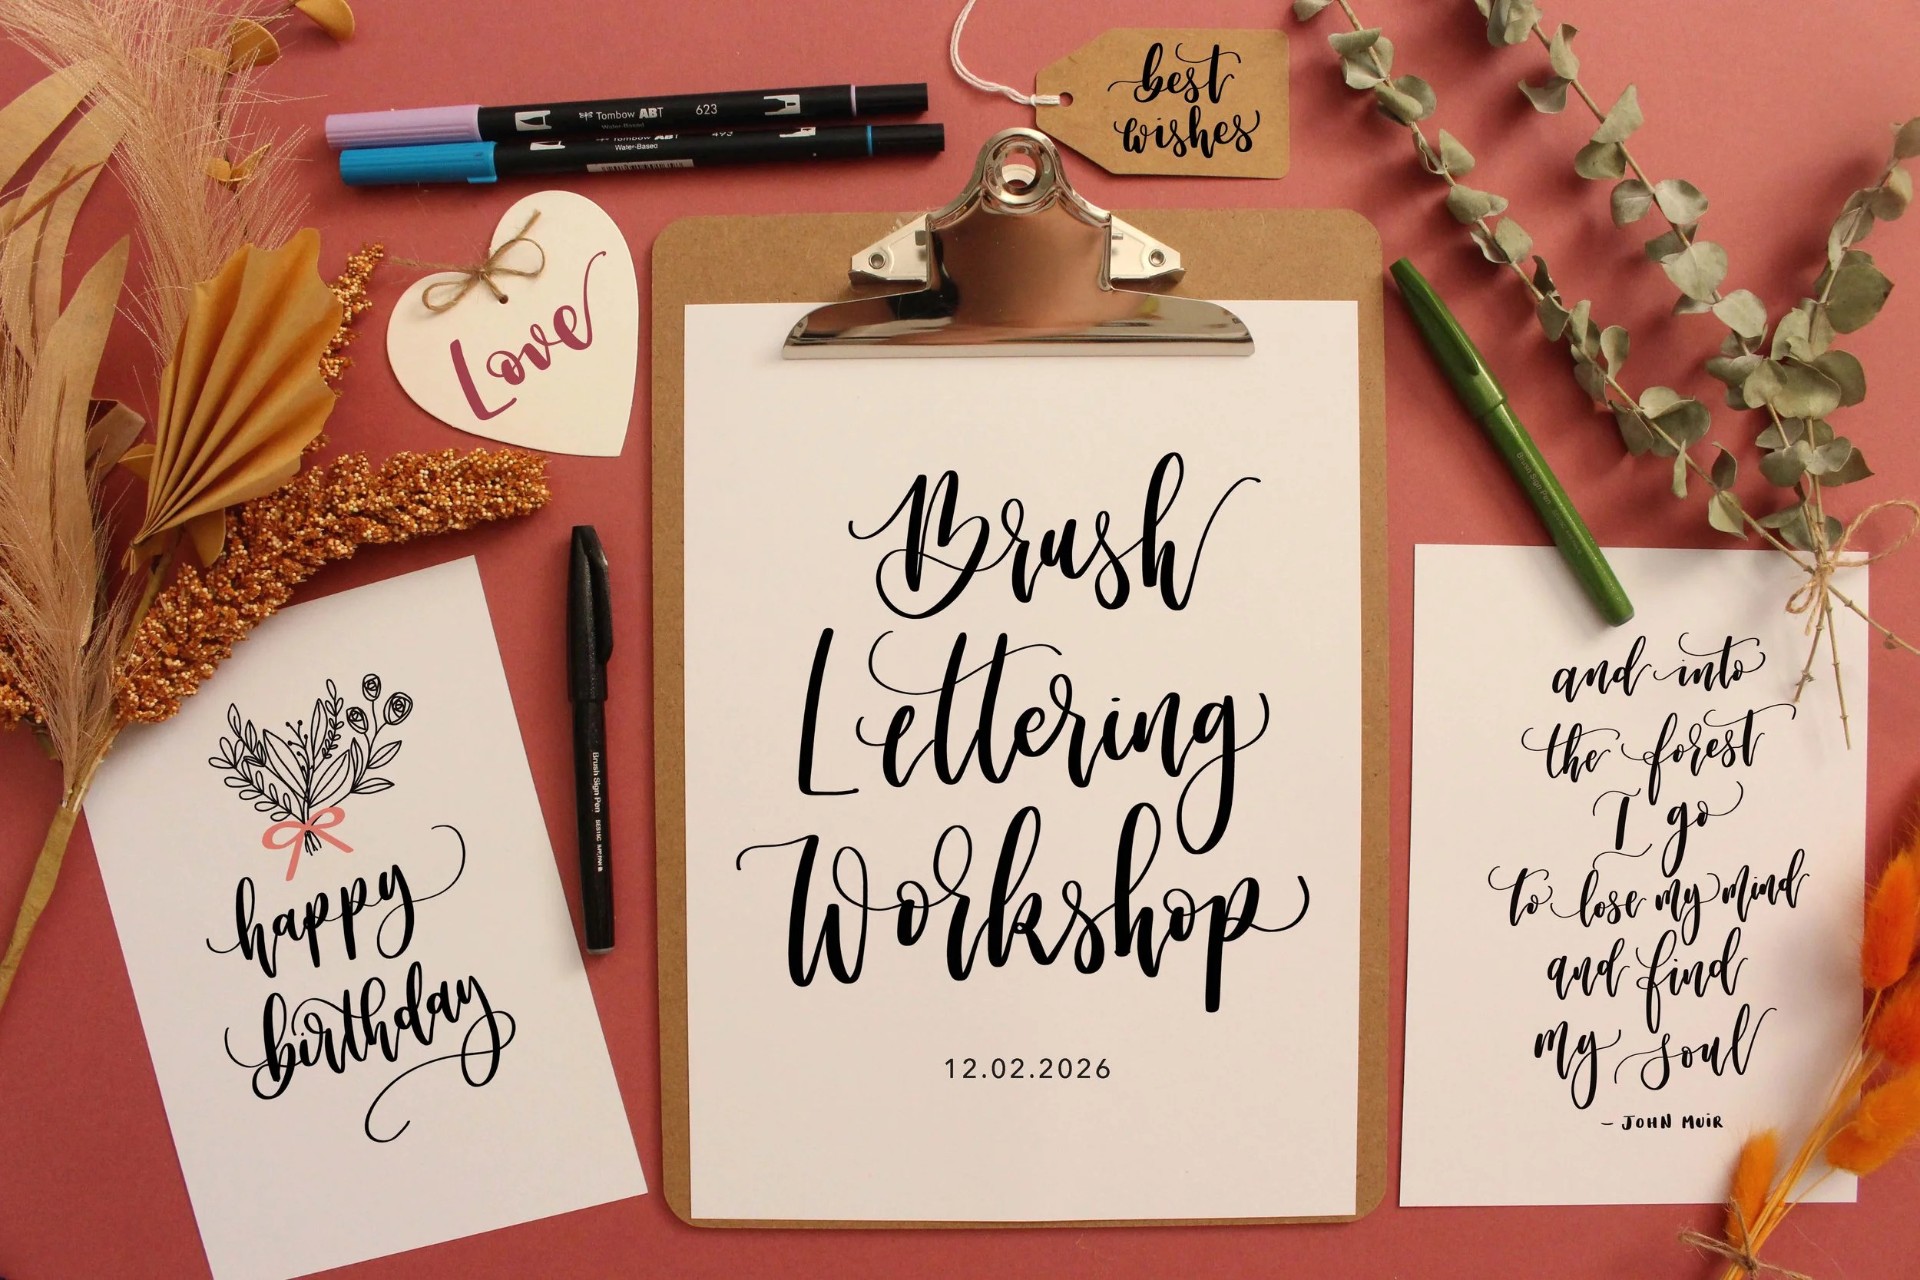 Tombow ABT 623
Water-Based
Tombow ABT 493
Water-Based
best
wishes
Love
Brush
Lettering
Workshop
12.02.2026
happy
birthday
Brush Sign Pen
Brush Sign Pen
and into
the forest
I go
to lose my mind
and find
my soul
- JOHN MUIR